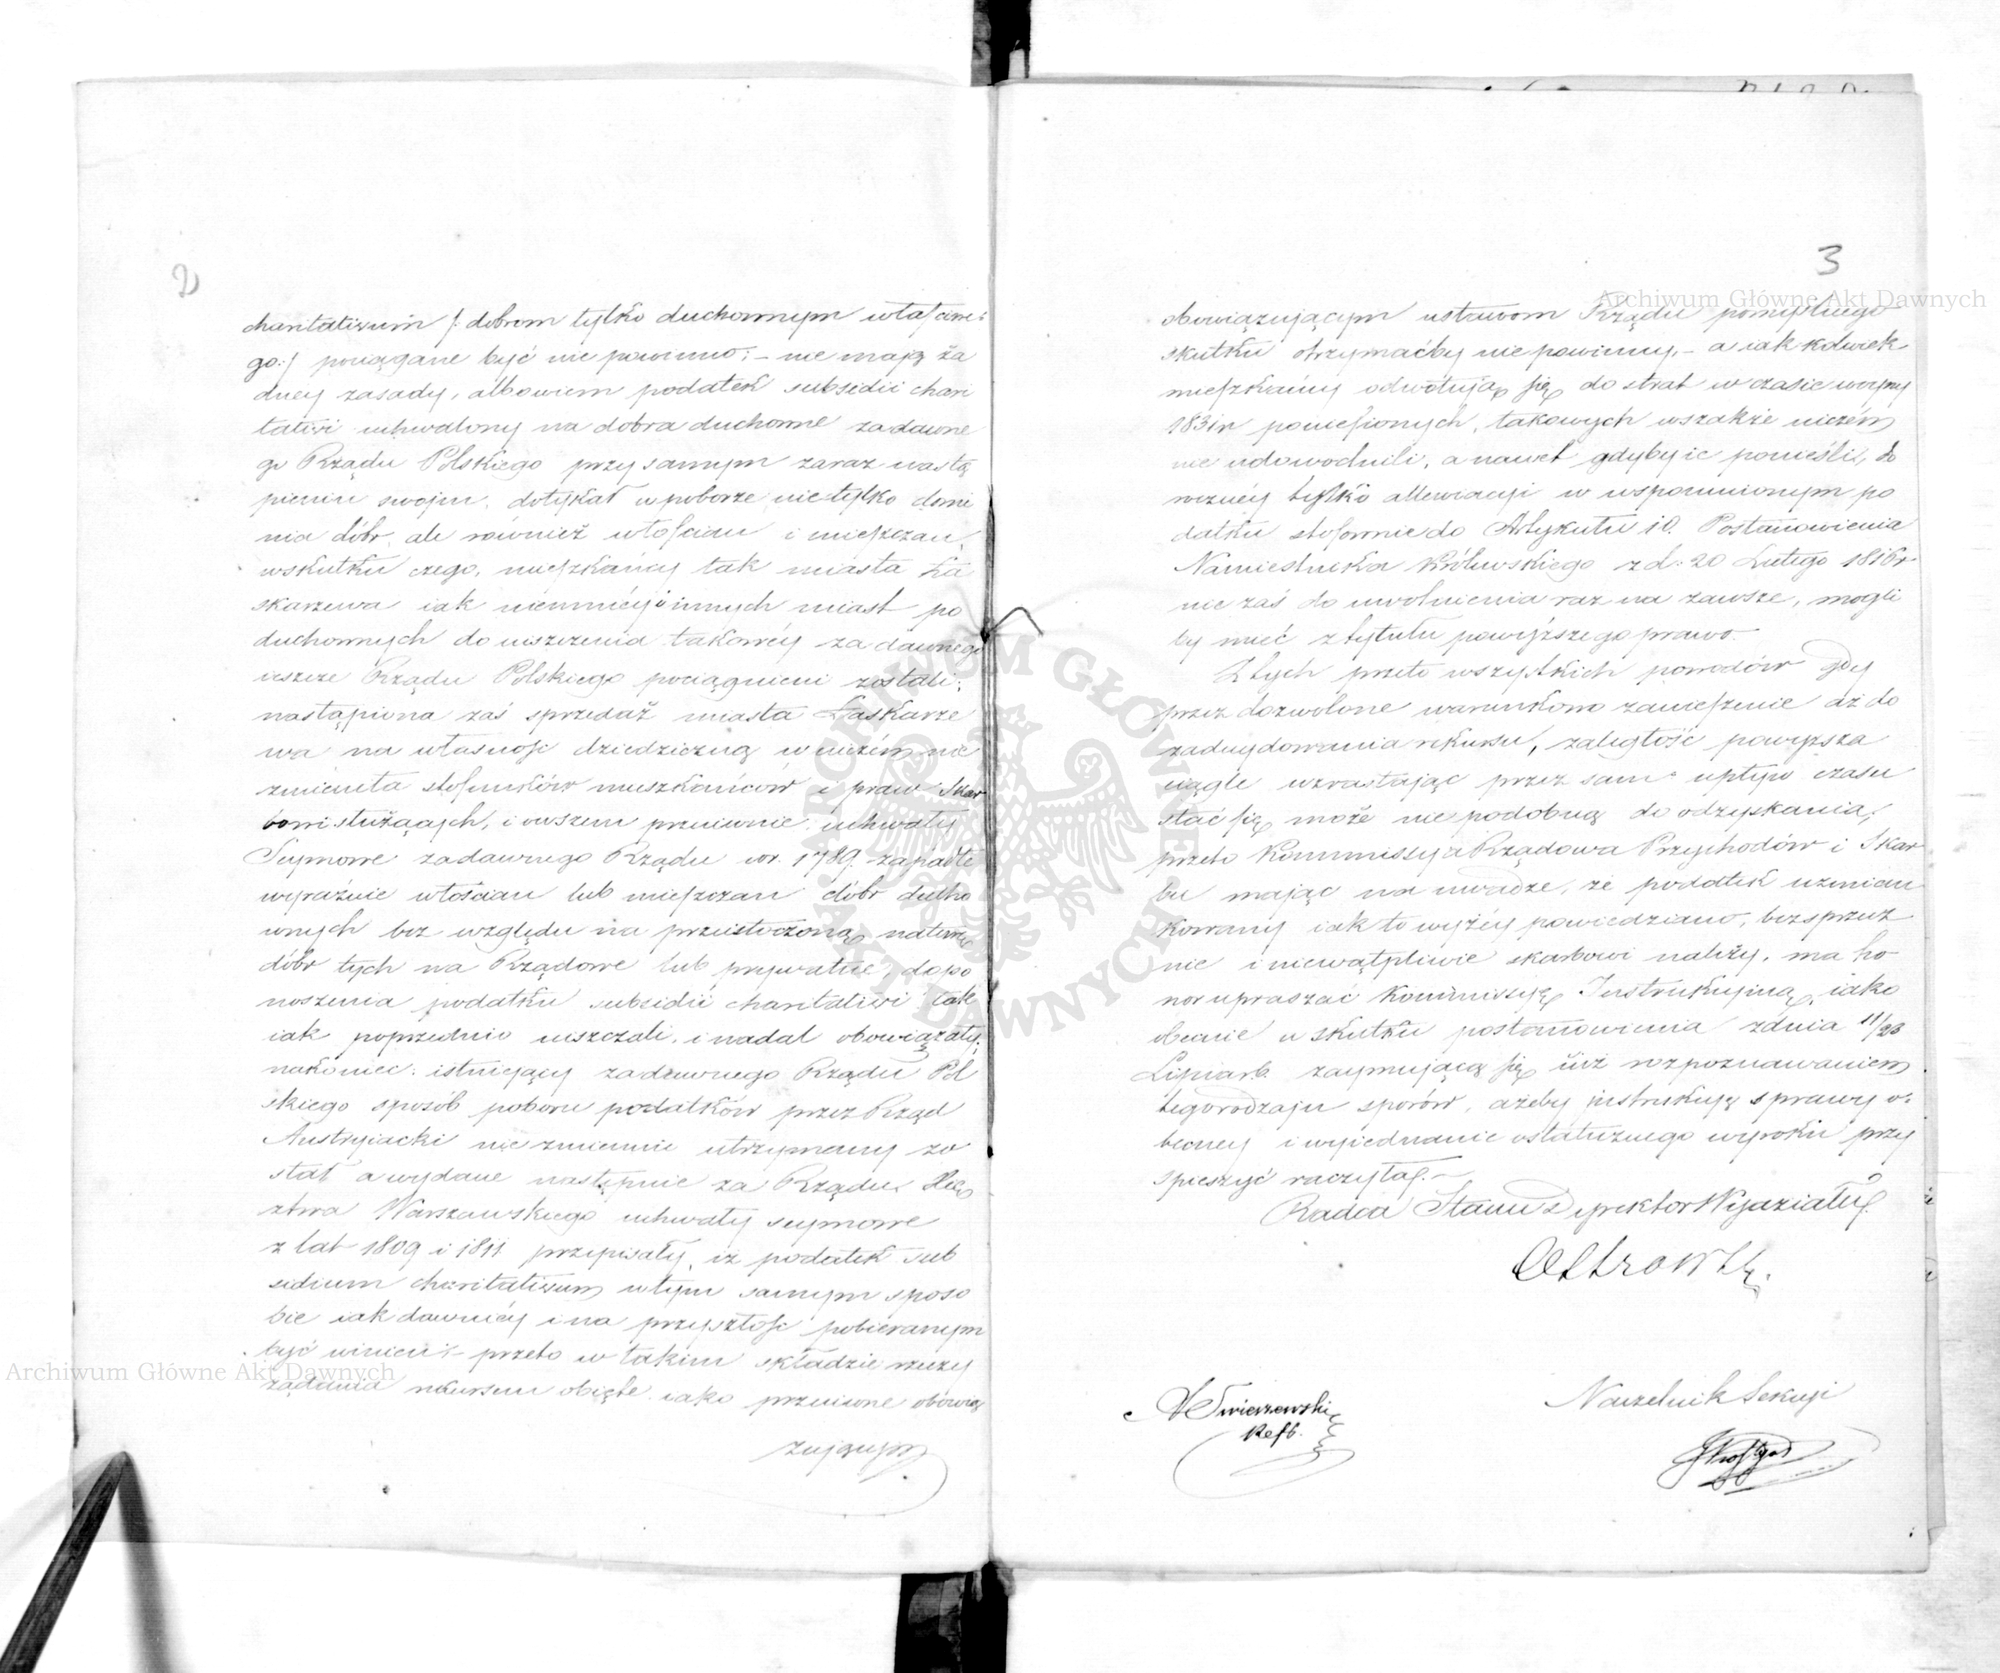 2
charitativum /: dobrom tylko duchownym właściwe:
go:/ pociągane być nie powinno; – nie mają ża
dney zasady, albowiem podatek subsidii chari
tativi uchwalony na dobra duchowne za dawne
go Rządu Polskiego przy samym zaraz nastą
pieniu swojm, dotykał w poborze nie tylko domi
nia dóbr, ale również włościan i mieszczan,
wskutku czego, mieszkańcy tak miasta Ła
skarzewa iak niemniéy i innych miast po
duchownych do uiszczenia takowéy za dawnego
ieszcze Rządu Polskiego pociągnieni zostali;
nastąpiona zaś sprzedaż miasta Łaskarze
wa na własność dziedziczną w niczém nie
zmieniła stosunków mieszkańców i praw Skar
bowi służących, i owszem przeciwnie, uchwały
Seymowe za dawnego Rządu w r. 1789. zapadłe
wyraźnie włościan lub mieszczan dóbr ducho
wnych bez względu na przeistoczoną naturę
dóbr tych na Rządowe lub prywatne, do po
noszenia podatku subsidii charitativi tak
iak poprzednio uiszczali, i nadal obowiązały;
nakoniec: istniejący za dawnego Rządu Pol
skiego sposób poboru podatków przez Rząd
Austryiacki nie zmiennie utrzymany zo
stał a wydane następnie za Rządu Xię
ztwa Warszawskiego uchwały seymowe
z lat 1809 i 1811 przepisały, iż podatek sub
sidium charitativum w tym samym sposo
bie iak dawniéy i na przyszłość pobieranym
być winien; – przeto w takim składzie rzeczy
żądania rekursem obięte iako przeciwne obowią
zującym
3
obowiązującym ustawom Rządu pomyślnego
skutku otrzymaćby nie powinny, – a iakkolwiek
mieszkańcy odwołują się do strat w czasie woyny
1831 r. poniesionych, takowych wszakże niczém
nie udowodnili, a nawet gdyby ie ponieśli, do
roczney tylko allewiacyi w wspomnionym po
datku stosownie do Artykułu 10. Postanowienia
Namiestnika Królewskiego z d. 20 Lutego 1816 r
nie zaś do uwolnienia raz na zawsze, mogli
by mieć z tytułu powyższego prawo. –
Z tych przeto wszystkich powodów gdy
przez dozwolone warunkowo zawieszenie aż do
zadecydowania rekursu, zaległość powyższa
ciągle wzrastając przez sam upływ czasu
stać się może nie podobną do odzyskania;
przeto Kommissya Rządowa Przychodów i Skar
bu mając na uwadze, że podatek wzmian
kowany iak to wyżéy powiedziano, bezsprzecz
nie i niewątpliwie skarbowi należy, ma ho
nor upraszać Kommissyę Instrukcyiną, iako
obecnie w skutku postanowienia z dnia 11/23
Lipca r.b. zaymującą się iuż rozpoznawaniem
tego rodzaju sporów, ażeby instrukcyę sprawy o:
becney i wyiednanie ostatecznego wyroku przy
spieszyć raczyła. –
Radca Stanu Dyrektor Wydziału
Ostrowski.
Świerzewski
Refb.
Naczelnik Sekcyi
Archiwum Główne Akt Dawnych
Archiwum Główne Akt Dawnych
ARCHIWUM GŁÓWNE AKT DAWNYCH